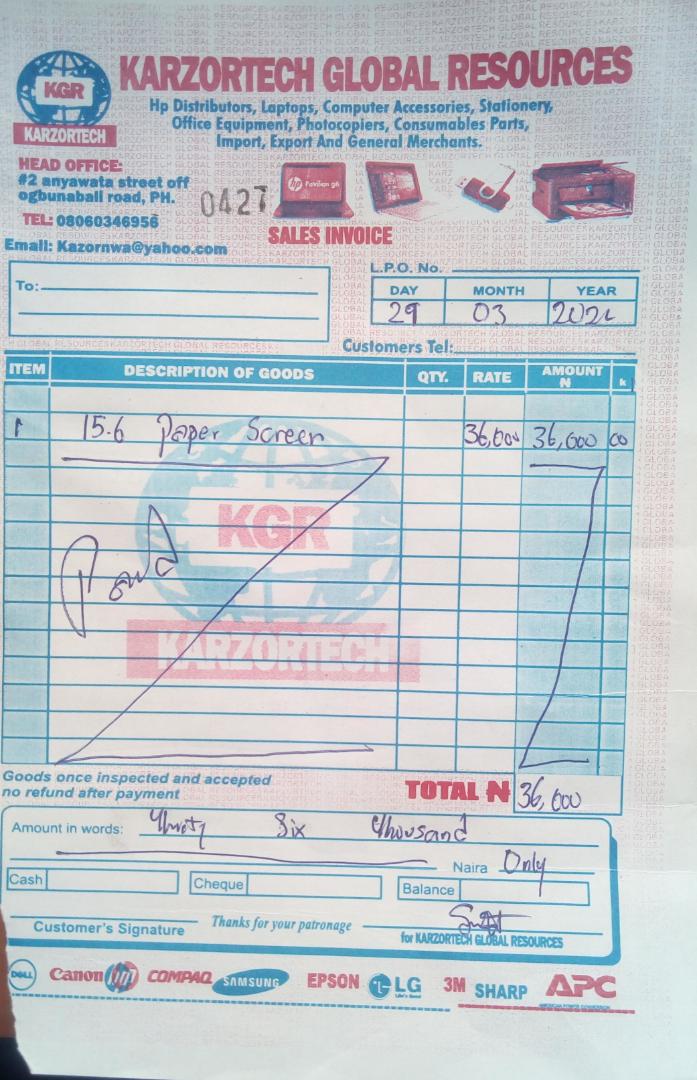 KGR
KARZORTECH
KARZORTECH GLOBAL RESOURCES
Hp Distributors, Laptops, Computer Accessories, Stationery,
Office Equipment, Photocopiers, Consumables Parts,
Import, Export And General Merchants.
HEAD OFFICE:
#2 anyawata street off
ogbunabali road, PH.
TEL: 08060346956
Email: Kazornwa@yahoo.com
0427
hp Pavilion g6
SALES INVOICE
To:
L.P.O. No.
DAY MONTH YEAR
29 03
Customers Tel:
ITEM DESCRIPTION OF GOODS QTY. RATE AMOUNT N k
1 15.6 Paper Screen 36,000 36,000 00
KGR
Paid
KARZORTECH
Goods once inspected and accepted
no refund after payment
TOTAL N 36,000
Amount in words: Thirty Six Thousand
Naira Only
Cash Cheque Balance
Customer's Signature Thanks for your patronage for KARZORTECH GLOBAL RESOURCES
DELL Canon hp COMPAQ SAMSUNG EPSON LG Life's Good 3M SHARP APC
AMERICAN POWER CONVERSION